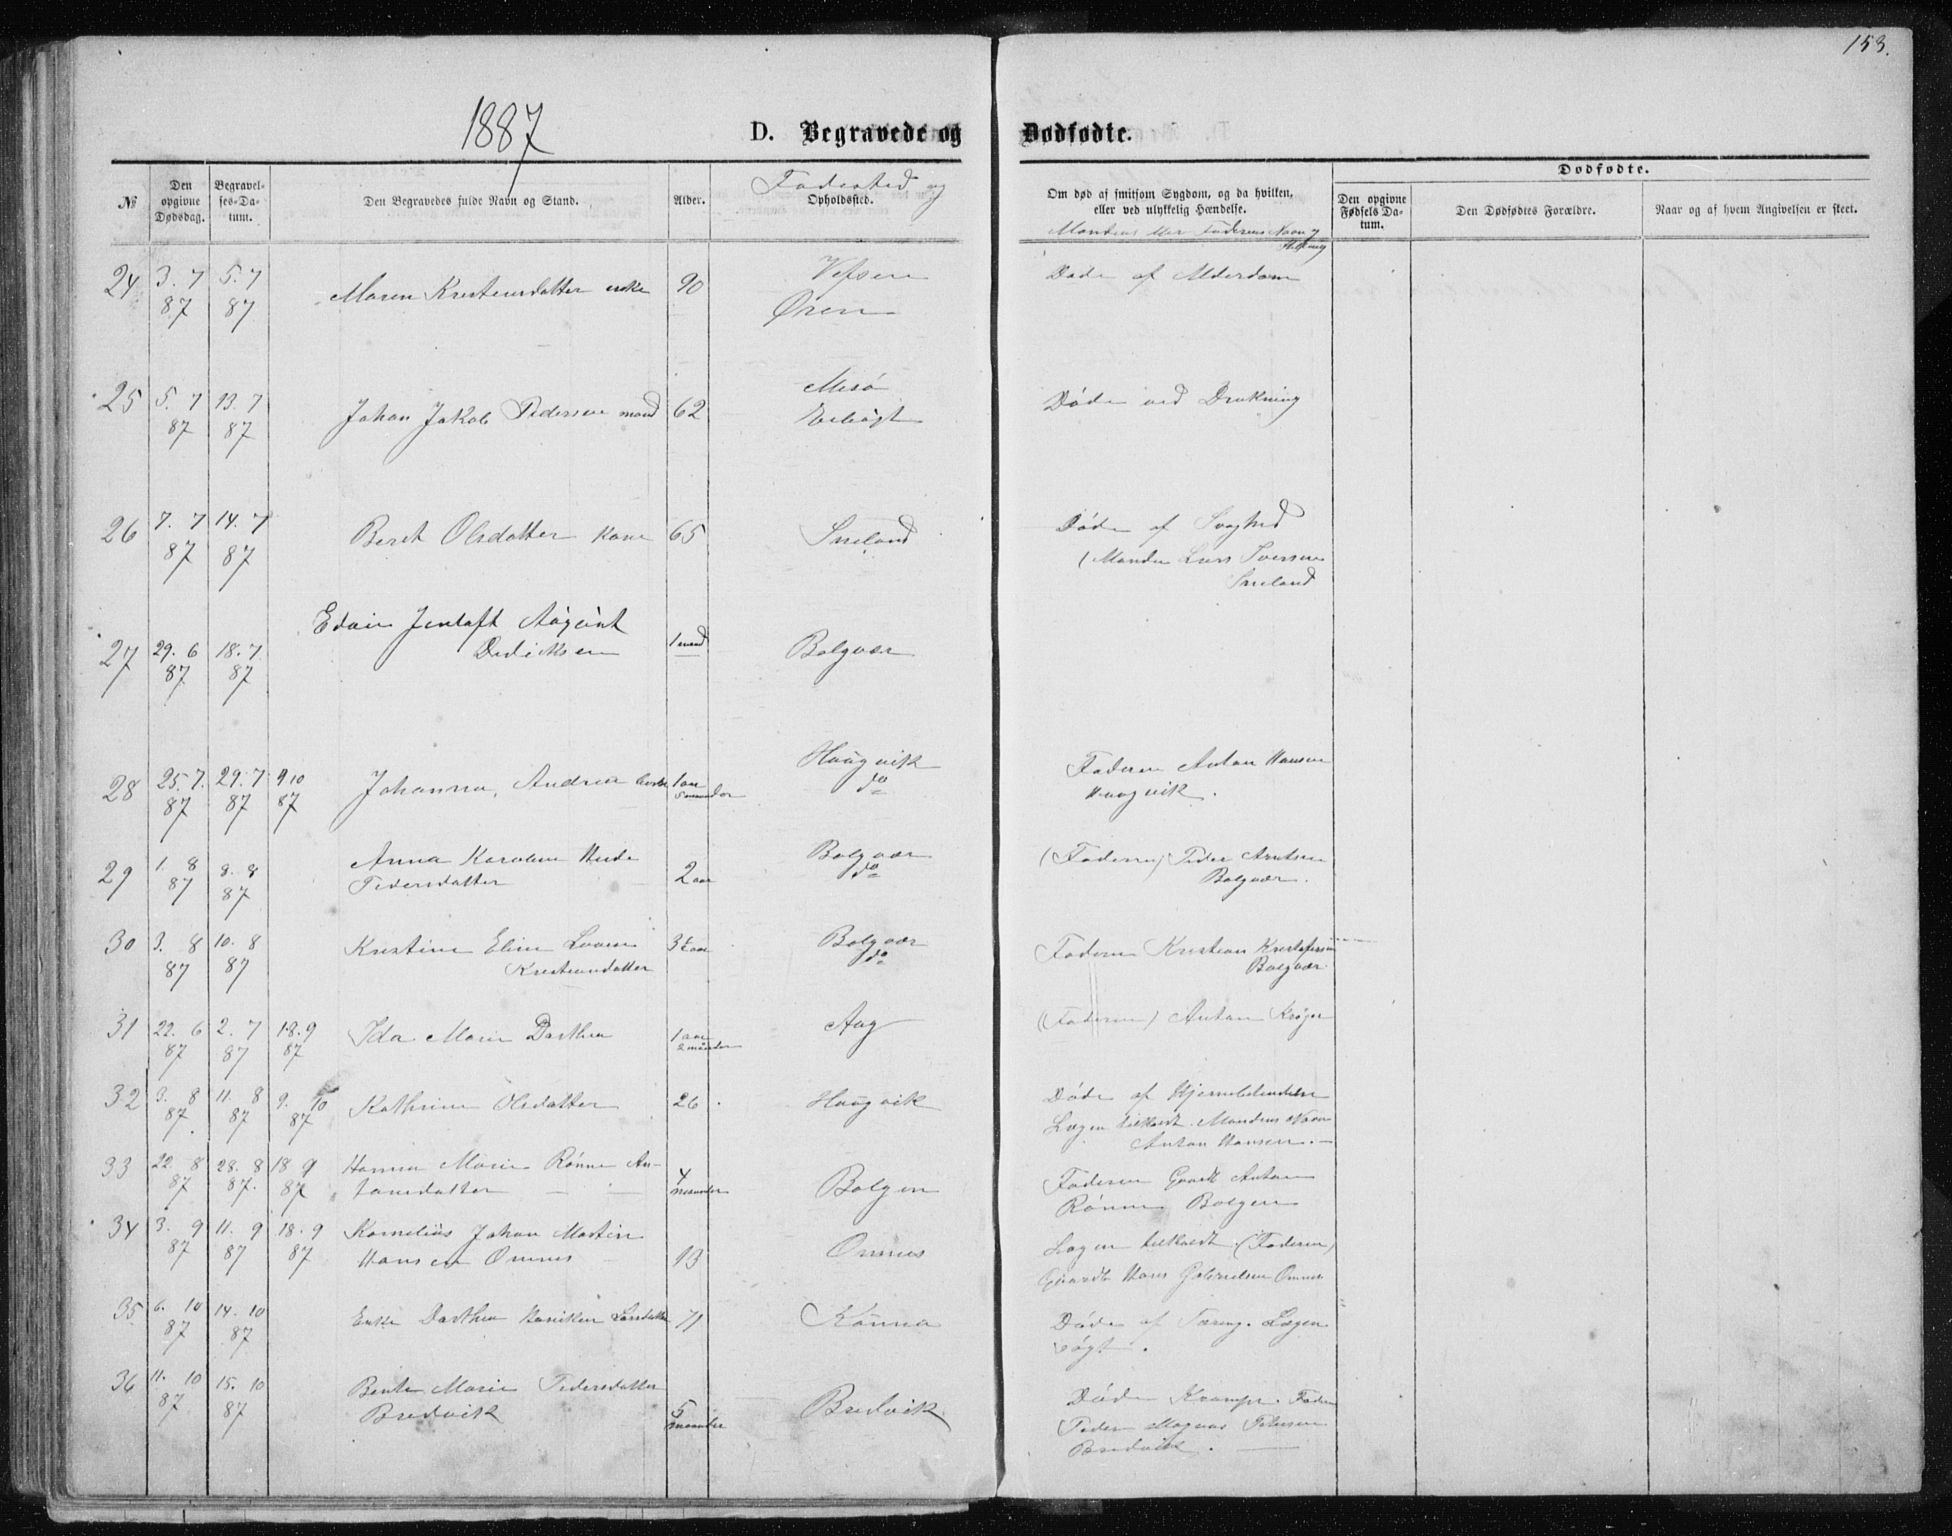 153.
1887
D. Begravede og Dødfødte.
№
Den opgivne Dødsdag.
Begravelses-Datum.
Den Begravedes fulde Navn og Stand.
Alder.
Fødested og
Opholdssted.
Om død af smitsom Sygdom, og da hvilken,
eller ved ulykkelig Hændelse.
Mandens eller Faderens Navn og
Dødfødte.
Den opgivne Fødsels Datum.
Den Dødfødtes Forældre.
Naar og af hvem Angivelsen er skeet.
24 3. 7 87 5. 7 87 Maren Kristensdatter enke 90 Vefsen
Øren Døde af Alderdom
25 5. 7 87 13. 7 87 Johan Jakob Pedersen mand 62 Mesö
Døde ved Drukning
26 7. 7 87 14. 7 87 Beret Olsdatter Kone 65 Sneland Døde af Svaghed
(Manden Lars Iversen
Sneland
27 29. 6 87 18. 7 87 Edvin Jentoft Aügüst
Dediksen 1 mnd Bolgvær
28 25. 7. 87 29. 7 87 9 10 87 Johanna Andrea 1 aar
5 maander Haugvik
do Faderen Anton Hansen
Haugvik.
29 1. 8 87 8. 8 87 Anna Karoline
Pedersdatter 2 aar Bolgvær
do (Faderen) Peder Arntsen
Bolgvær.
30 3. 8 87 10. 8 87 Kristine Eline
Kristiansdatter Bolgvær
do Faderen Kristian Kristofersen
Bolgvær
31 22. 6 87 2. 7 87 18. 9 87 Ida Marie Dorthea 1 aar
2 månder Aag (Faderen) Anton Krøger
32 3. 8 87 11. 8 87 9. 10 87 Kathrine Olsdatter 26. Haugvik Døde af
Lægen tilkaldt. Mandens Navn
Anton Hansen. —
33 22. 8 87 28. 8 87. 18 9 87 Hanna Marie Rønne An-
tonsdatter — — 4
maander Bolgen Faderen Anton
Rønne Bolgen
34 3. 9 87 11. 9 87 18. 9 87 Kornelius Johan Martin
Hansen Omnes 13 Omnes Lægen tilkaldt. (Faderen)
Hans Omnes
35 6. 10 87 14. 10 87 Enke Dorthea Larsdatter 71 Rönna Døde af Tæring. Lægen
søgt.
36 11. 10 87 15. 10 87 Bente Marie Pedersdatter
Bredvik 5
maander Bredvik Døde Krampe. Fader
Peder Magnus Petersen
Bredvik. —